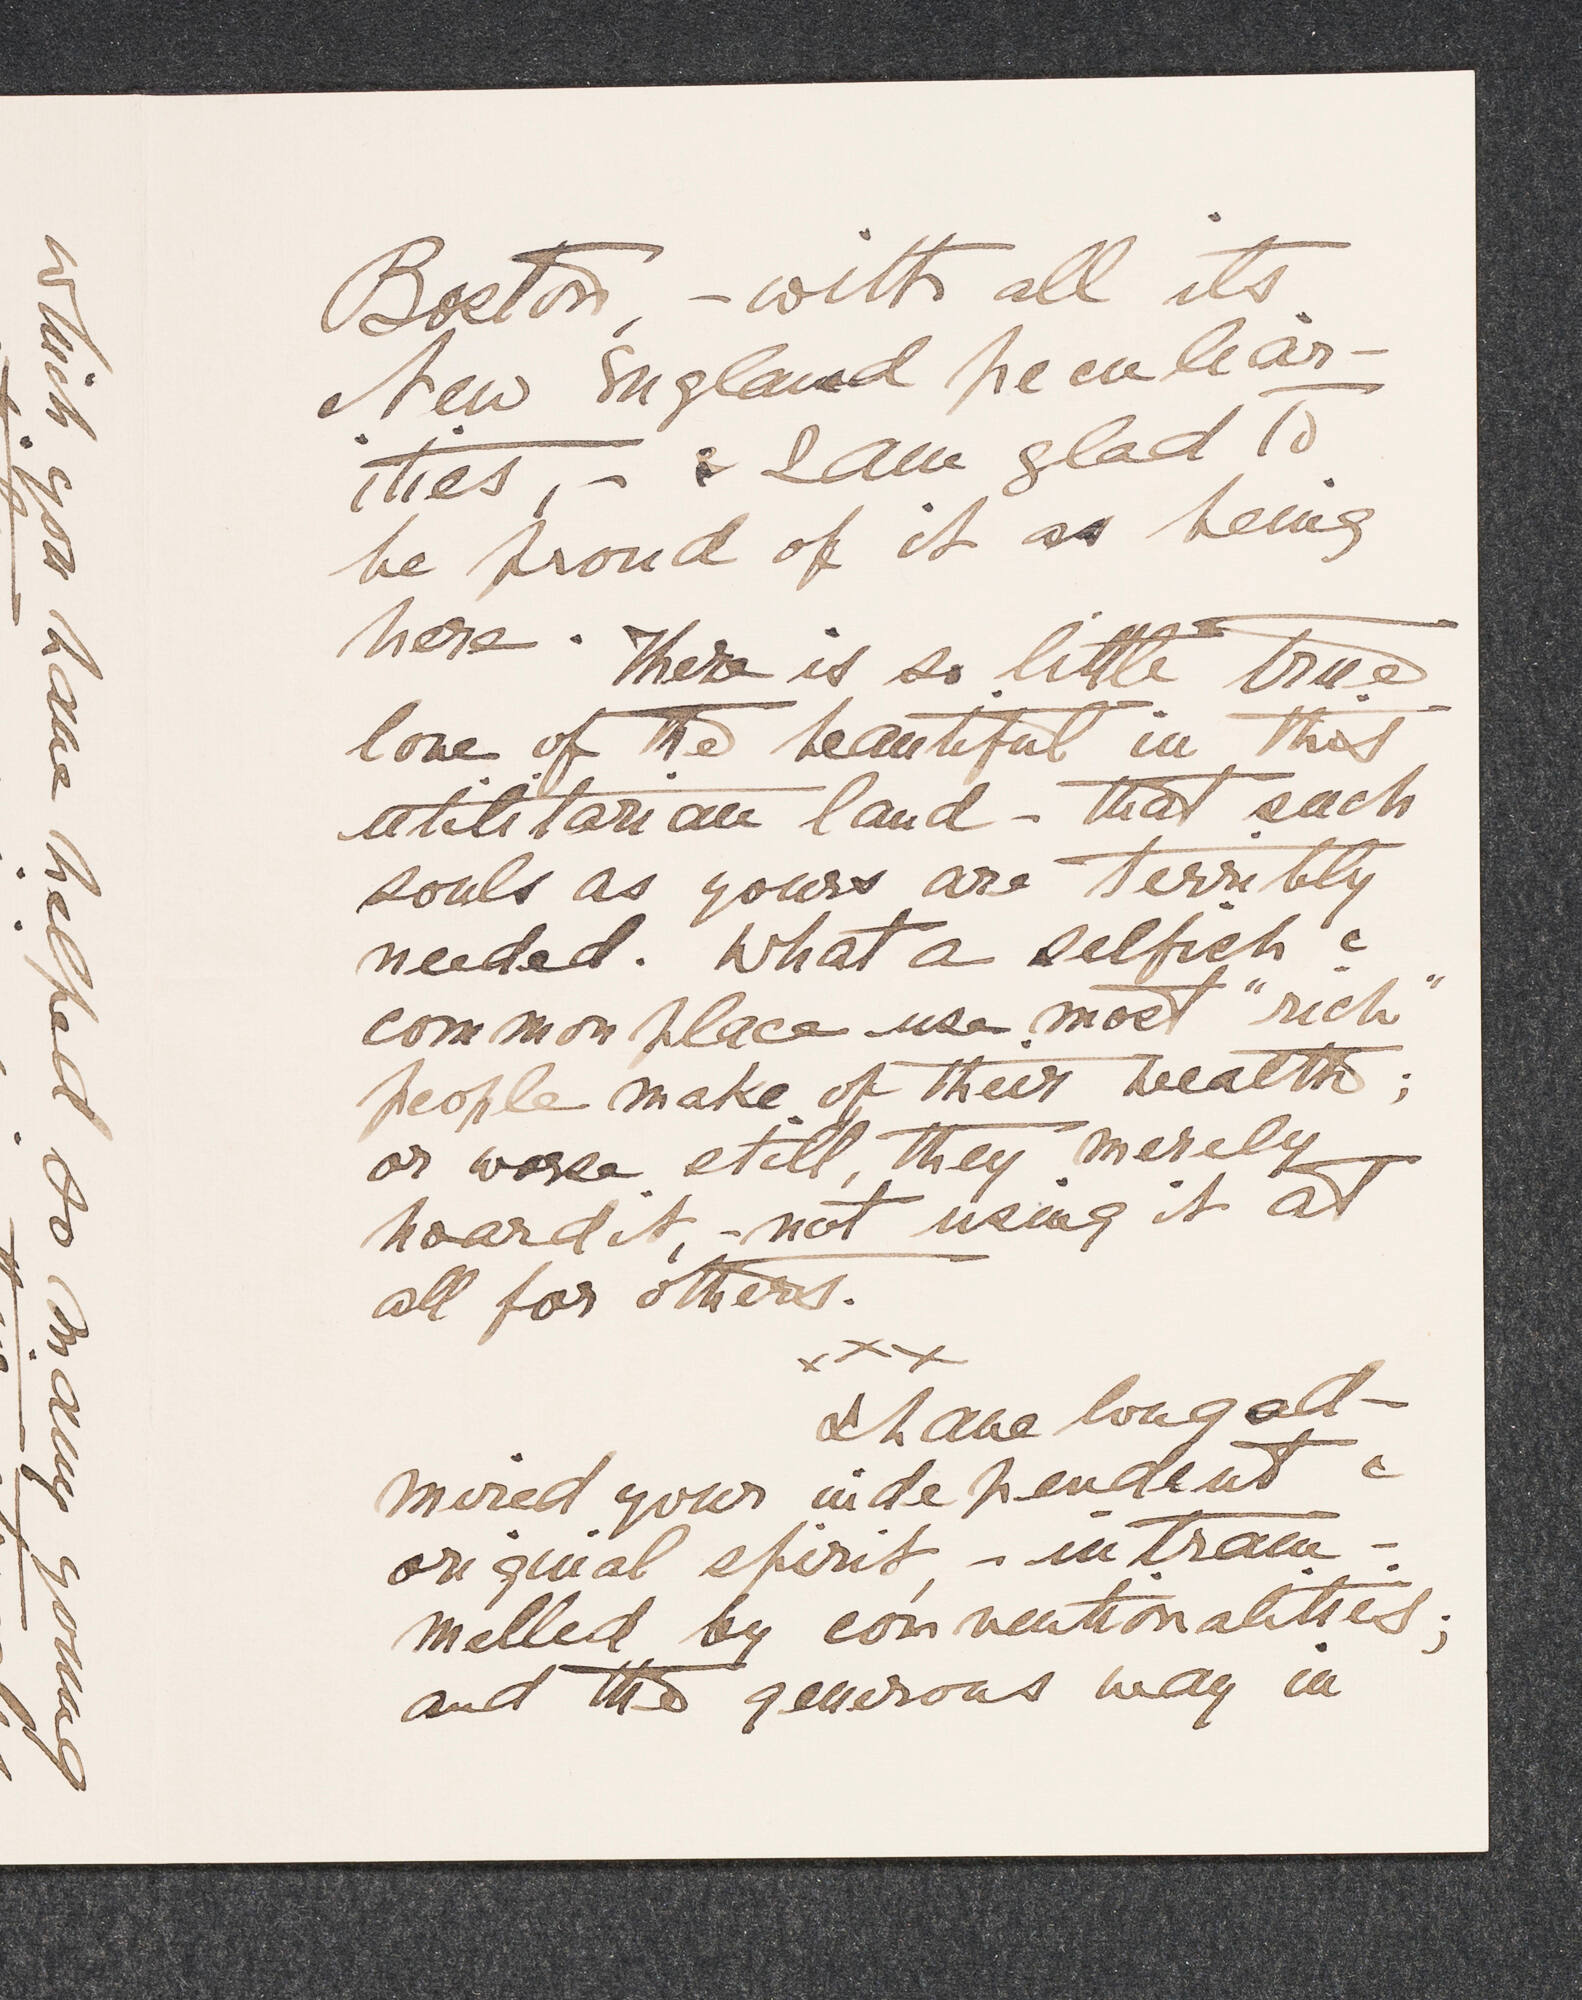 Boston, - with all its
New England peculiar-
ities, - & I am glad to
be proud of it as being
here. There is so little true
love of the beautiful in this
utilitarian land - that such
souls as yours are terribly
needed. What a selfish &
commonplace use most "rich"
people make of their wealth;
or worse still, they merely
hoard it, - not using it at
all for others.
x x x
I have long ad-
mired your independent &
original spirit, - intram-
melled by conventionalities;
and the generous way in
which you have helped so many young